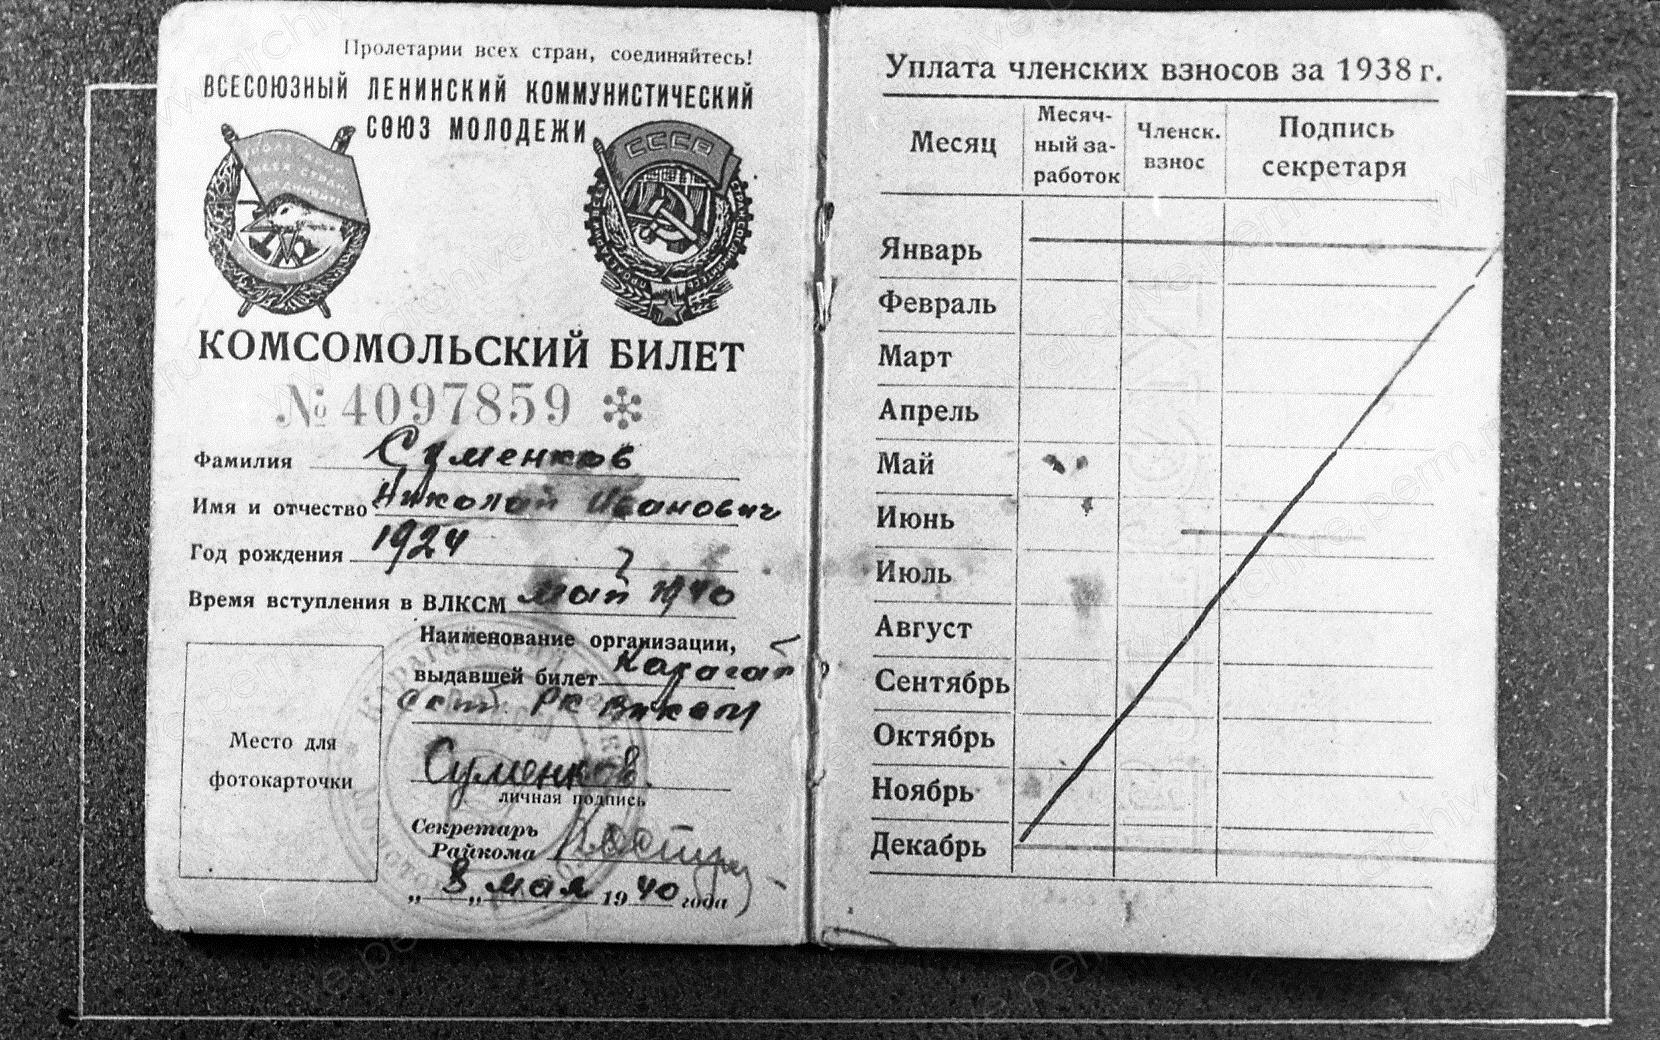 Пролетарии всех стран, соединяйтесь!
ВСЕСОЮЗНЫЙ ЛЕНИНСКИЙ КОММУНИСТИЧЕСКИЙ
СОЮЗ МОЛОДЕЖИ
СССР
КОМСОМОЛЬСКИЙ БИЛЕТ
№ 4097859
Фамилия Суменков
Имя и отчество Николай Иванович
Год рождения 1924
Время вступления в ВЛКСМ май 1940
Наименование организации,
выдавшей билет Карагай
ский РК ВЛКСМ
Суменков
личная подпись
Место для
фотокарточки
Секретарь
Райкома
„8„ мая 1940 года
Уплата членских взносов за 1938 г.
Месяц
Месяч-
ный за-
работок
Членск.
взнос
Подпись
секретаря
Январь
Февраль
Март
Апрель
Май
Июнь
Июль
Август
Сентябрь
Октябрь
Ноябрь
Декабрь